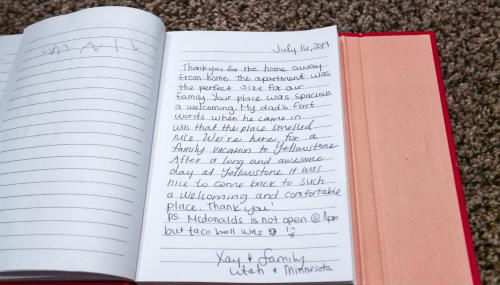 July 16, 2019
Thank you for the home away
from home. The apartment was
the perfect size for our
family. Your place was spacious
& welcoming. My dad's first
words when he came in
was that the place smelled
nice. We're here for a
family vacation to Yellowstone.
After a long and awesome
day at Yellowstone it was
nice to come back to such
a welcoming and comfortable
place. Thank you!
Ps. Mcdonalds is not open @
but taco bell was
Xay & family
Utah & Minnesota